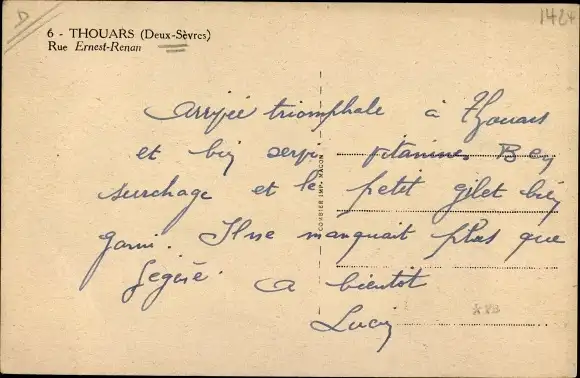 D
1424
6 - THOUARS (Deux-Sèvres)
Rue Ernest-Renan
Arrivée triomphale à Thouars
et bien vitamines B en
surchage et le petit gilet bien
garni. Il ne manquait plus que
A bientôt
COMBIER IMP. MACON